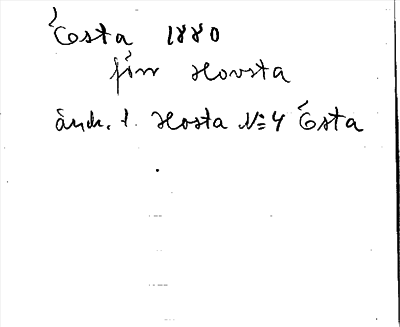 Ćosta 1880
förr Hovsta
ändr. t. Hosta № 4 Ćsta